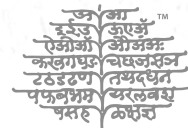 अ आ ™
इईउ ऊएॲ
ऐऑओ औअंअः
कखगघङ चछजझञ
टठडढण तथदधन
पफबभम यरलवश
षसह ळक्षज्ञ